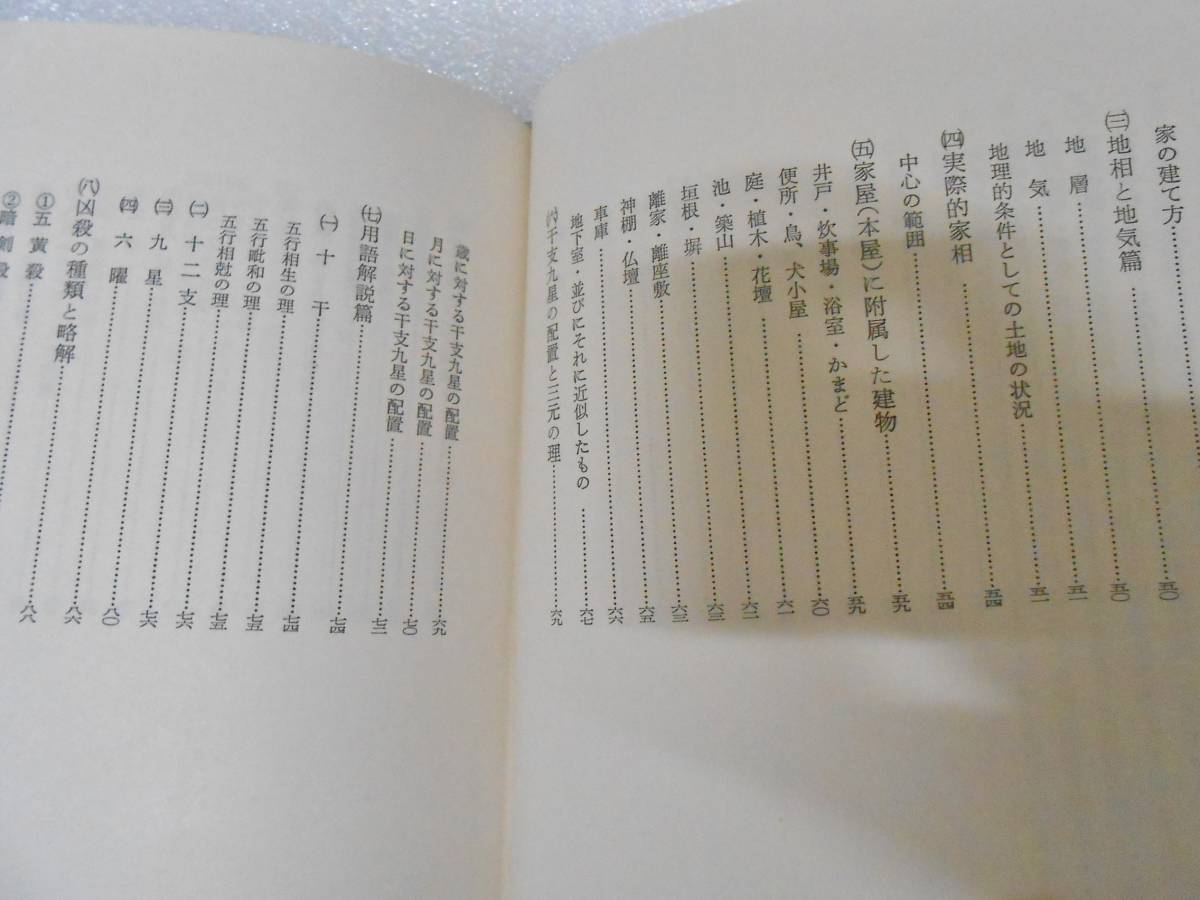 家の建て方……五〇
㈢地相と地気篇……五〇
地層……五一
地気……五一
地理的条件としての土地の状況……五四
㈣実際的家相……五四
中心の範囲……五九
㈤家屋（本屋）に附属した建物……五九
井戸・炊事場・浴室・かまど……六〇
便所・鳥、犬小屋……六一
庭・植木・花壇……六二
池・築山……六三
垣根・塀……六三
離家・離座敷……六五
神棚・仏壇……六六
車庫……六七
地下室・並びにそれに近似したもの……六七
㈥干支九星の配置と三元の理……六九
歳に対する干支九星の配置……六九
月に対する干支九星の配置……七〇
日に対する干支九星の配置……七二
㈦用語解説篇……七四
㈠十干……七四
五行相生の理……七四
五行毗和の理……七五
五行相尅の理……七五
㈡十二支……七六
㈢九星……七六
㈣六曜……八〇
㈧凶殺の種類と略解……八六
①五黄殺……八八
②暗剣殺